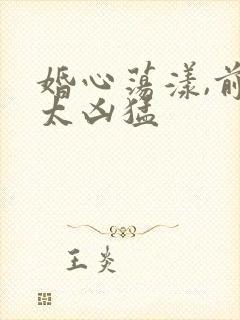 婚心荡漾,前
太凶猛
王炎